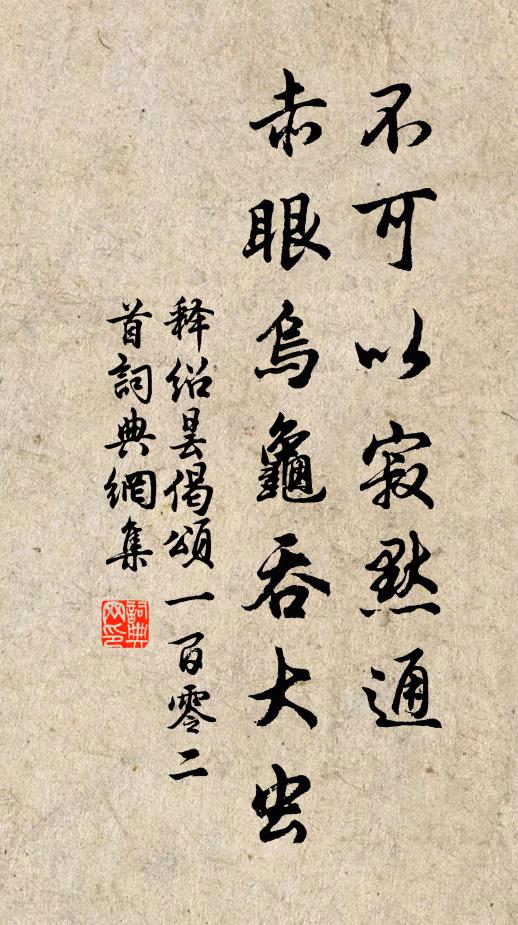 不可以寂默通
赤眼烏龜吞大虫
释绍昙偈頌一百零二
首詞典網集
詞典
网印